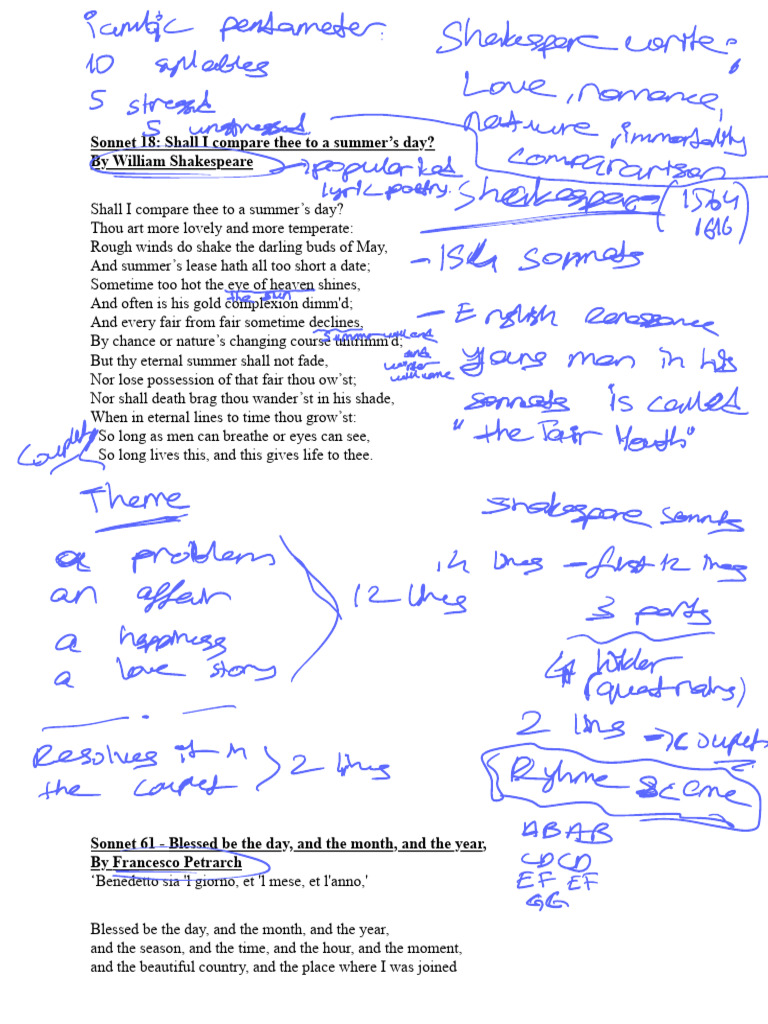 iambic pentameter.
10 syllables
5 stressed
5 unstressed
Shakespeare write:
Love, romance,
nature, immortality
comparison
Sonnet 18: Shall I compare thee to a summer's day?
By William Shakespeare
popularized
lyric poetry.
Shakespeare (1564
1616)
- 154 sonnets
- English
young man in his
sonnets is called
"the Fair Youth"
Shall I compare thee to a summer's day?
Thou art more lovely and more temperate:
Rough winds do shake the darling buds of May,
And summer's lease hath all too short a date;
Sometime too hot the eye of heaven shines,
the sun
And often is his gold complexion dimm'd;
And every fair from fair sometime declines,
summer will end
and
winter
will come
By chance or nature's changing course untrimm'd;
But thy eternal summer shall not fade,
Nor lose possession of that fair thou ow'st;
Nor shall death brag thou wander'st in his shade,
When in eternal lines to time thou grow'st:
So long as men can breathe or eyes can see,
So long lives this, and this gives life to thee.
couplet
Theme
a problem
an affair
a happiness
a love story
12 lines
Resolves it in
the couplet
2 lines
Shakespeare sonnets
14 lines - first 12 lines
3 parts
4
(quatrains)
2 lines → couplet
Ryhme Sceme
ABAB
CDCD
EF EF
GG
Sonnet 61 - Blessed be the day, and the month, and the year,
By Francesco Petrarch
'Benedetto sia 'l giorno, et 'l mese, et l'anno,'
Blessed be the day, and the month, and the year,
and the season, and the time, and the hour, and the moment,
and the beautiful country, and the place where I was joined